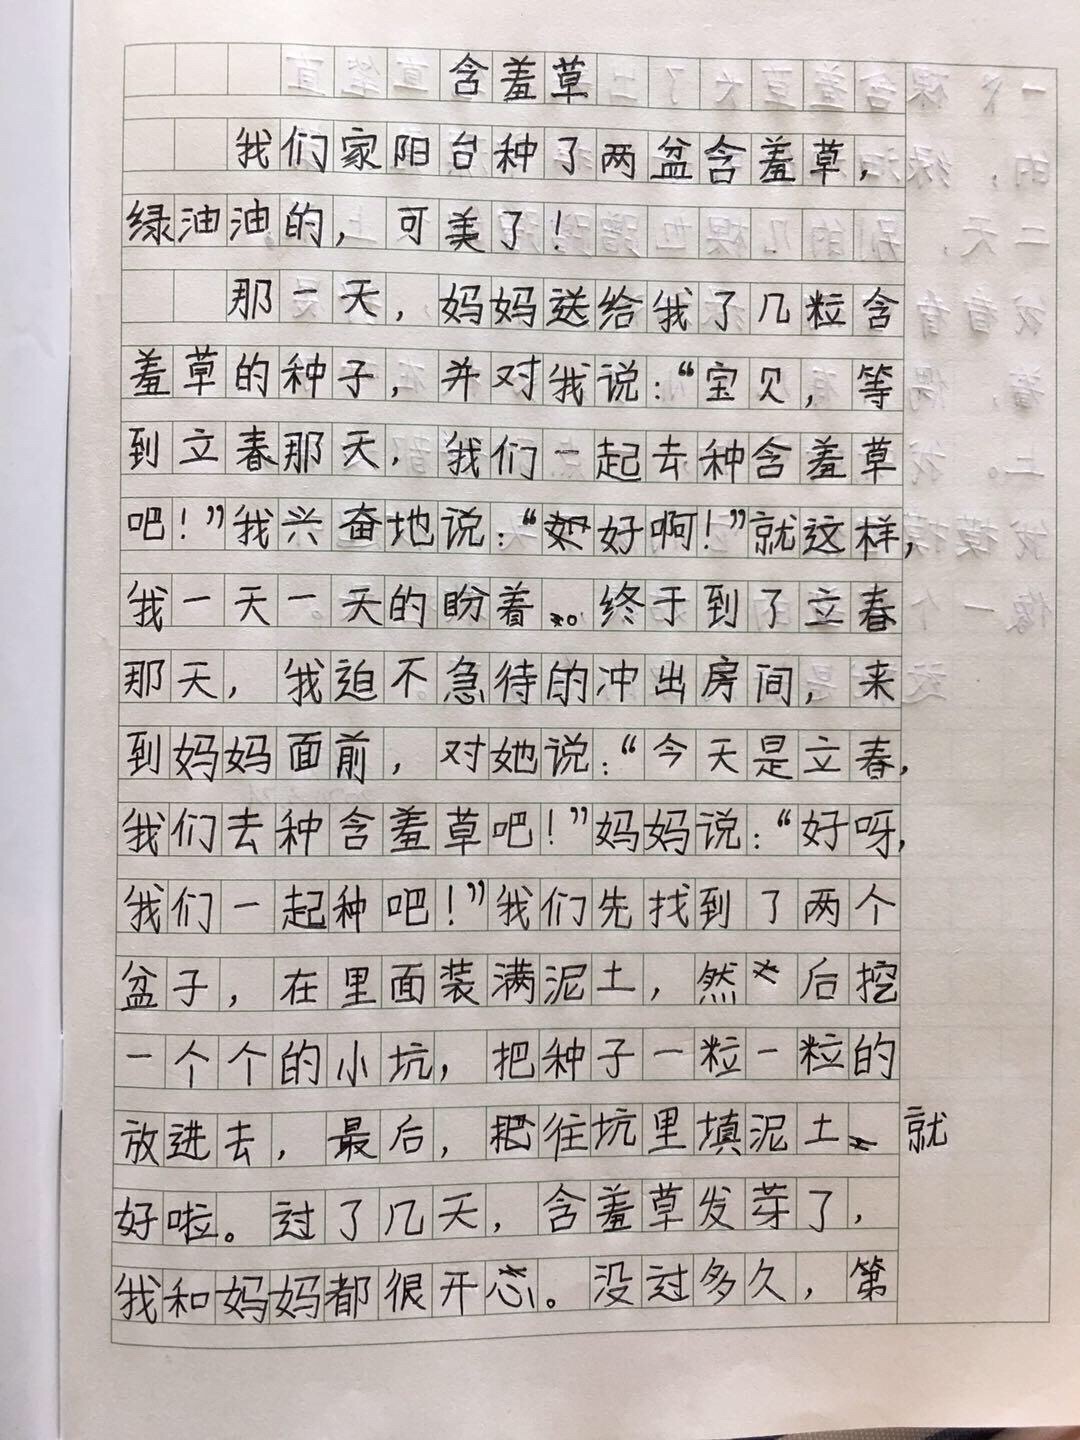 含羞草
我们家阳台种了两盆含羞草，
绿油油的，可美了！
那一天，妈妈送给我了几粒含
羞草的种子，并对我说：“宝贝，等
到立春那天，我们一起去种含羞草
吧！”我兴奋地说：“好啊！”就这样，
我一天一天的盼着。终于到了立春
那天，我迫不急待的冲出房间，来
到妈妈面前，对她说：“今天是立春，
我们去种含羞草吧！”妈妈说：“好呀，
我们一起种吧！”我们先找到了两个
盆子，在里面装满泥土，然后挖
一个个的小坑，把种子一粒一粒的
放进去，最后，往坑里填泥土就
好啦。过了几天，含羞草发芽了，
我和妈妈都很开心。没过多久，第